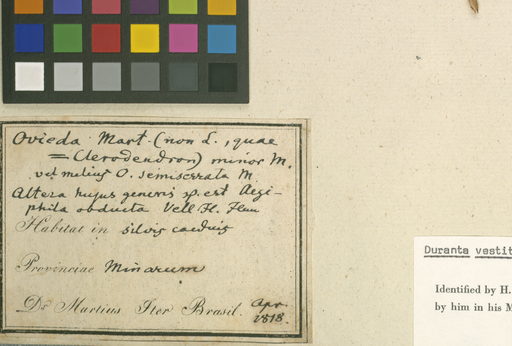 Ovieda Mart. (non L., quae
= Clerodendron) minor M.
vel melius O. semiserrata M.
Altera hujus generis sp. est Aegi-
phila obducta Vell Fl. Flum
Habitat in silvis caeduis
Provinciae Minarum
Dr Martius Iter Brasil. Apr.
1818.
Duranta vestit
Identified by H.
by him in his M